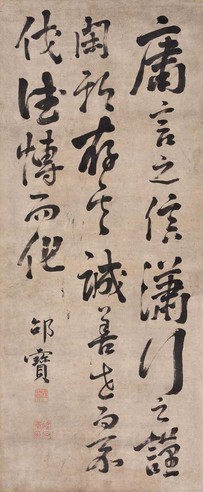 庸言之信庸行之謹
閑邪存其誠善世而不
伐德博而化
邵寶